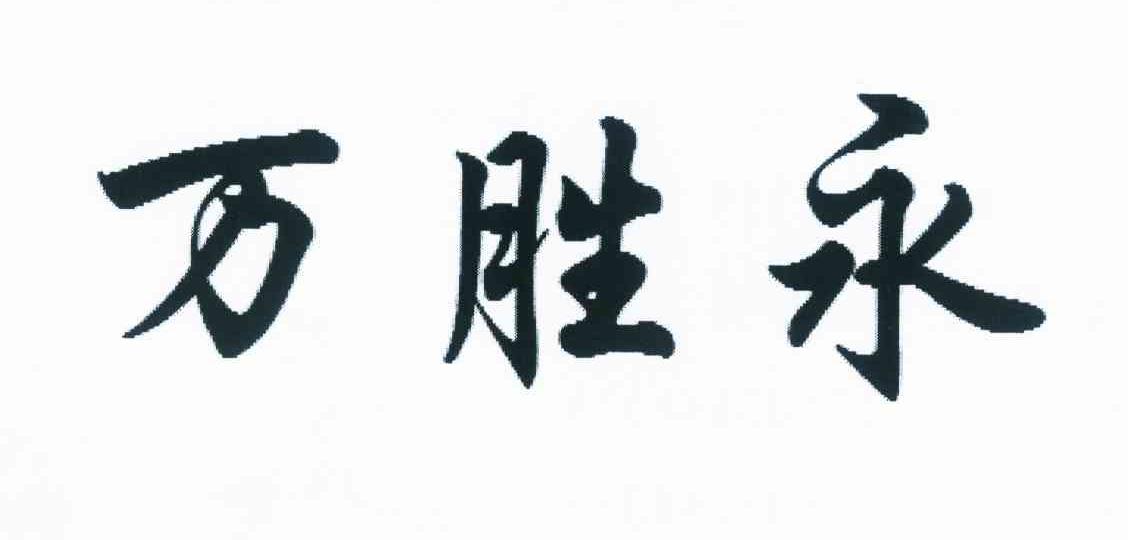 万胜永